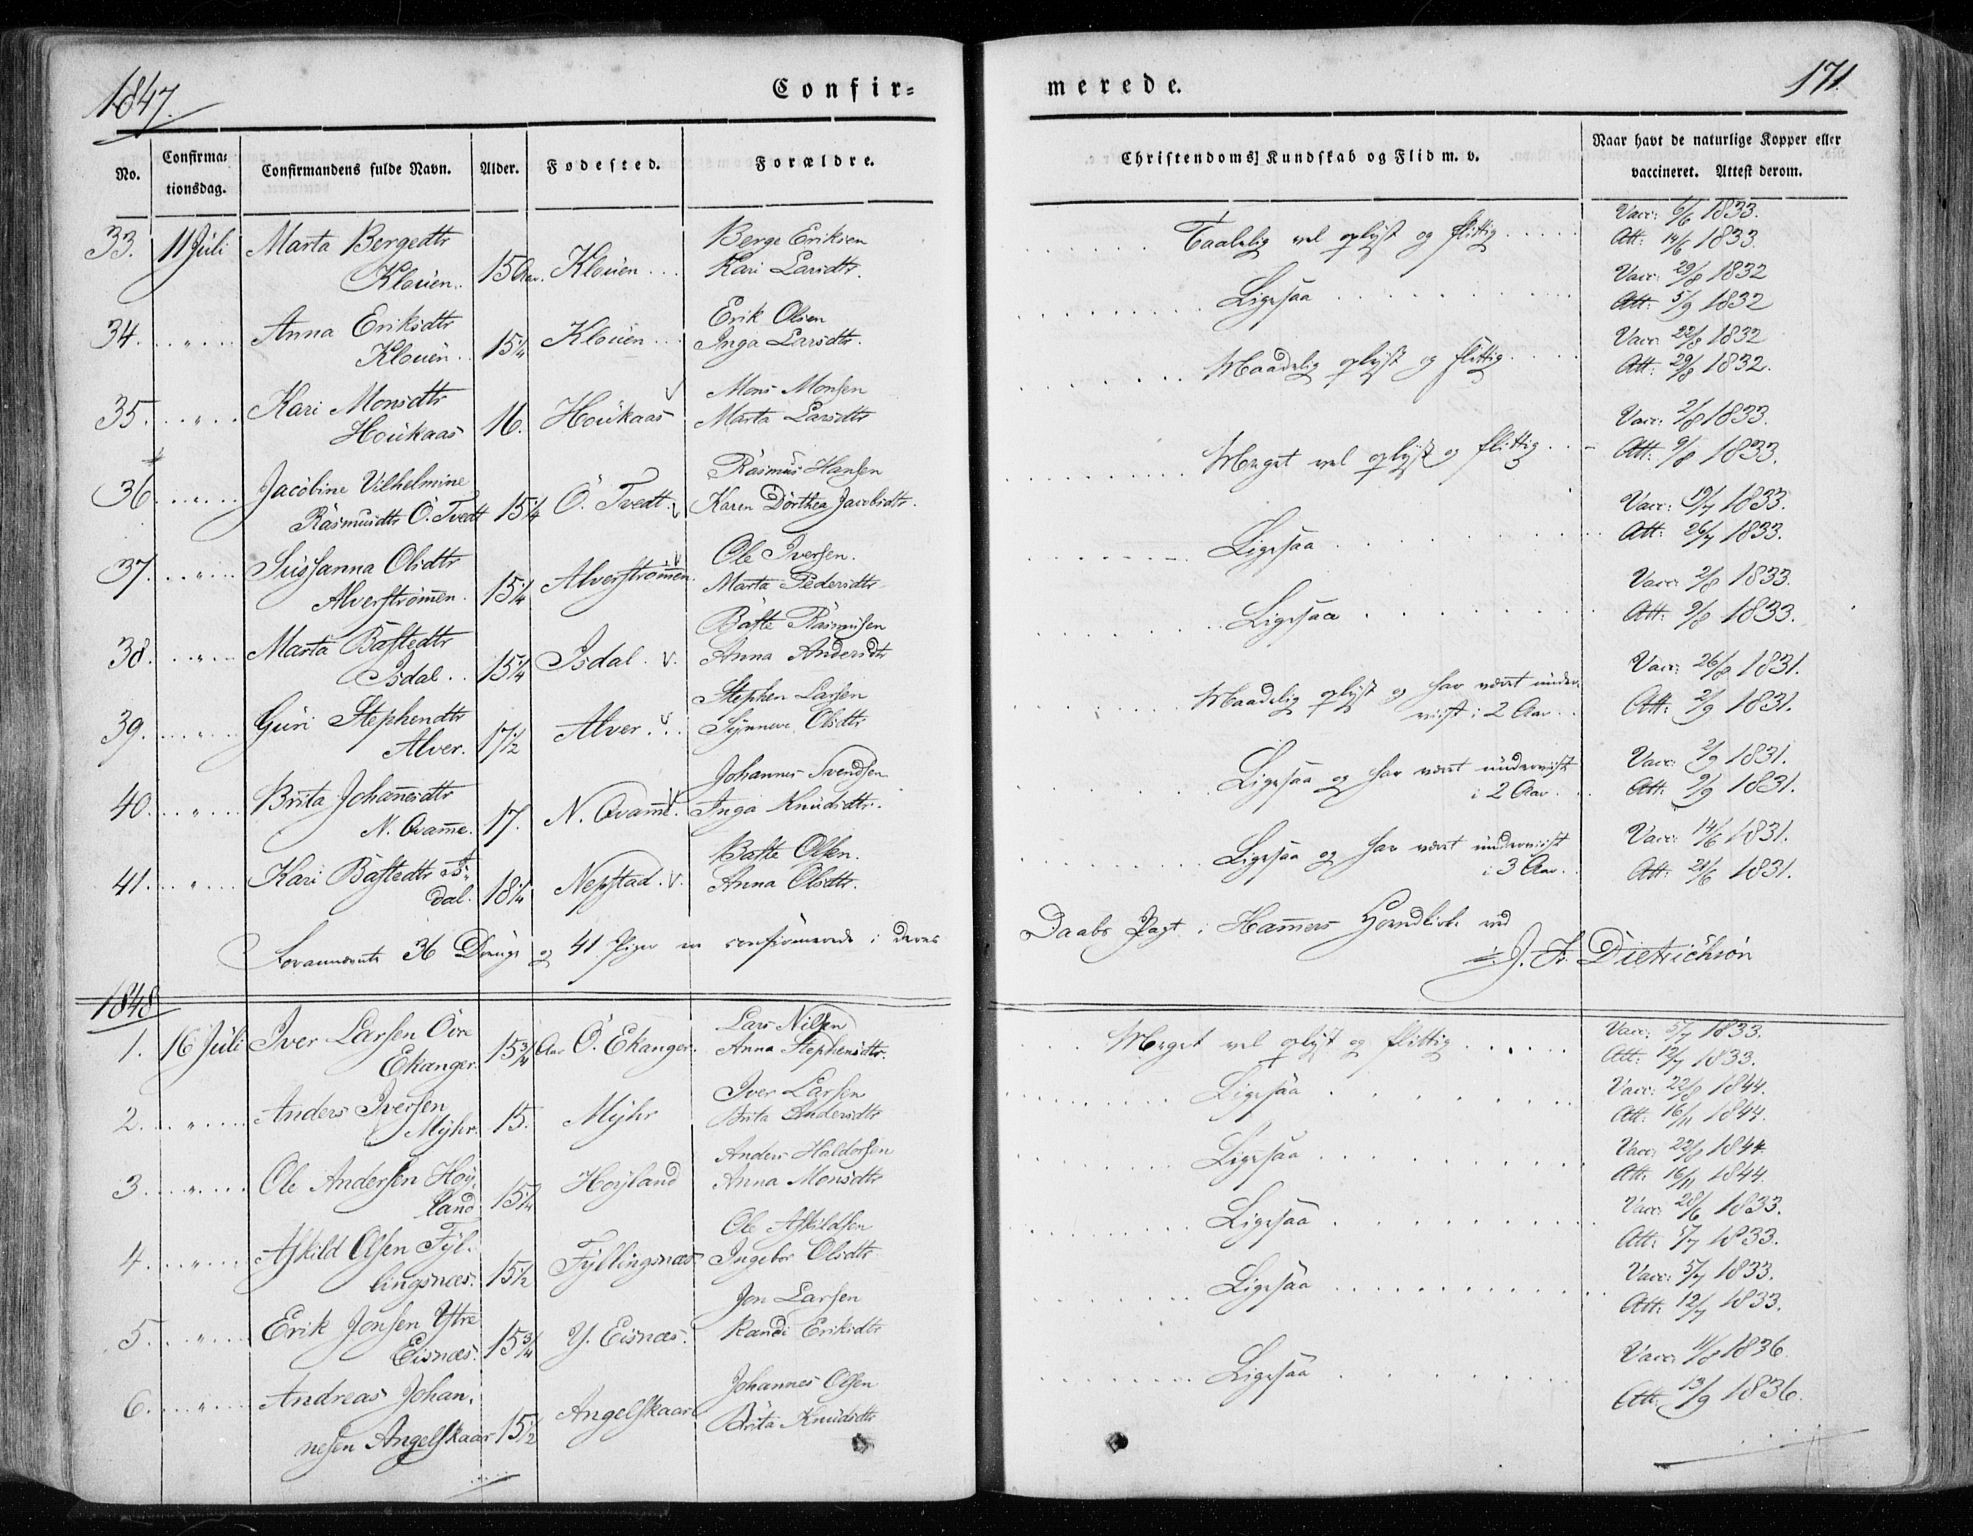 1847.
Confir=
No.
Confirma=
tionsdag.
Confirmandens fulde Navn.
Alder.
Fødested.
Forældre.
33. 11 Juli Marta Bergedtr Berge Eriksen
Klouen. 15 Aar. Klouen Kari Larsdtr.
34. " Anna Eriksdtr Erik Olsen
Klouen 15 1/4 Klouen Inga Larsdtr.
35. " Kari Monsdtr Mons Monsen
Houkaas 16. Houkaas Marta Larsdtr
36 " Jacobine Vilhelmine Rasmus Hansen
Rasmusdtr Ö. Tvedt 15 1/4 Ö. Tvedt Karen Dorthea Jacobsdtr.
37. " Sussanna Olsdtr Ole Iversen.
Alverströmen. 15 1/4 Alverströmen. Marta Pedersdtr
38. " Marta Bastedtr Baste Rasmusen
Isdal. 15 1/4 Isdal. v. Anna Andersdtr
39. " Guri Stephendtr Stephen Larsen
Alver. 17 1/2 Alver. v. Synneve Olsdtr
40. " Brita Johanesdtr Johannes Svendsen
N. Qvame. 17. N. Qvame. Inga Knudsdtr.
41. " Kari Bastedtr Is- Baste Olsen.
dal. 18 1/4 Nepstad. v. Anna Olsdtr.
Foranneunte 36 Drenge og 41 Piger er confirmerede i deres
1848
1. 16 Juli Iver Larsen Övre Lars Nilsen
Ekanger 15 3/4 Aar Ö. Ekanger. Anna Stephensdtr.
2. " Anders Iversen Iver Larsen
Myhr. 15. Myhr Brita Andersdtr
3. " Ole Andersen Höy- Anders Haldorsen
land 15 1/4 Höyland Anna Monsdtr
4. " Askild Olsen Fyl- Ole Askildsen
lingsnæs. 15 1/2 Fyllingsnæs Ingebor Olsdtr
5. " Erik Jonsen Ytre Jon Larsen
Eisnæs. 15 3/4 Y. Eisnæs. Randi Eriksdtr
6. " Andreas Johan- Johannes Olsen
nesen Angelskaar 15 1/2 Angelskaar Brita Knudsdtr
merede.
171.
Christendoms Kundskab og Flid m. v.
Naar havt de naturlige Kopper eller
vaccineret. Attest derom.
Taalelig vel oplyst og flittig Vacc: 6/6 1833.
Att: 14/6 1833.
Ligesaa Vacc: 29/8 1832
Att: 5/9 1832
Maadelig oplyst og flittig Vacc: 22/8 1832
Att: 29/8 1832.
Meget vel oplyst og flittig Vacc: 2/8 1833.
Att: 9/8 1833.
Ligesaa Vacc: 19/7 1833.
Att: 26/7 1833.
Ligesaa Vacc: 2/8 1833.
Att: 9/8 1833.
Maadelig oplyst og har været under- Vacc: 26/8 1831.
viist i 2 Aar. Att: 2/9 1831.
Ligesaa og har været underviist Vacc: 2/9 1831.
i 2 Aar. Att: 9/9 1831.
Ligesaa og har været underviist Vacc: 14/6 1831.
i 3 Aar. Att: 21/6 1831.
Daabs Pagt i Hamers Hovedkirke ved
J. Fr. Dietrichson
Meget vel oplyst og flittig Vacc: 5/7 1833.
Att: 12/7 1833.
Ligesaa Vacc: 22/8 1844.
Att: 16/11 1844.
Ligesaa Vacc: 22/8 1844.
Att: 16/11 1844.
Ligesaa Vacc: 28/6 1833.
Att: 5/7 1833.
Ligesaa Vacc: 5/7 1833.
Att: 12/7 1833.
Ligesaa Vacc: 11/8 1836.
Att. 13/9 1836.